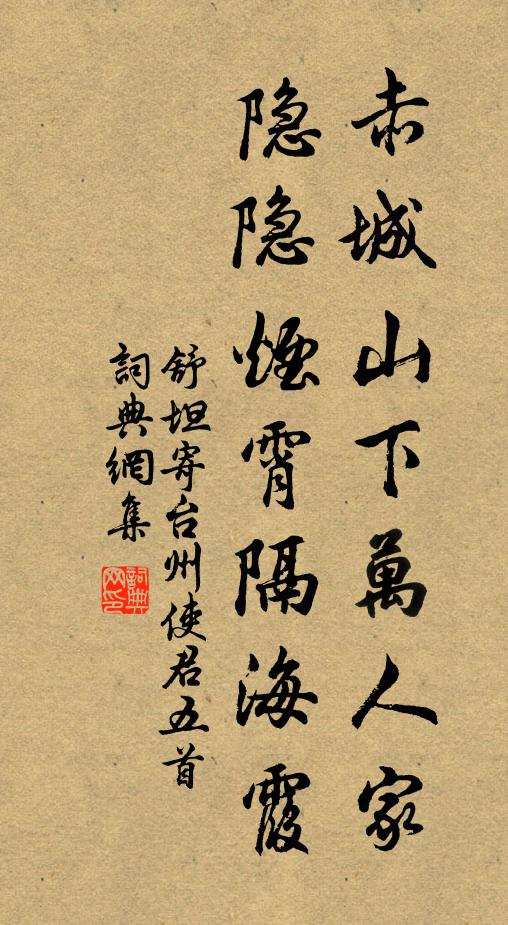 赤城山下萬人家
隐隐煙霄隔海霞
舒坦寄台州使君五首
詞典網集
詞典网印